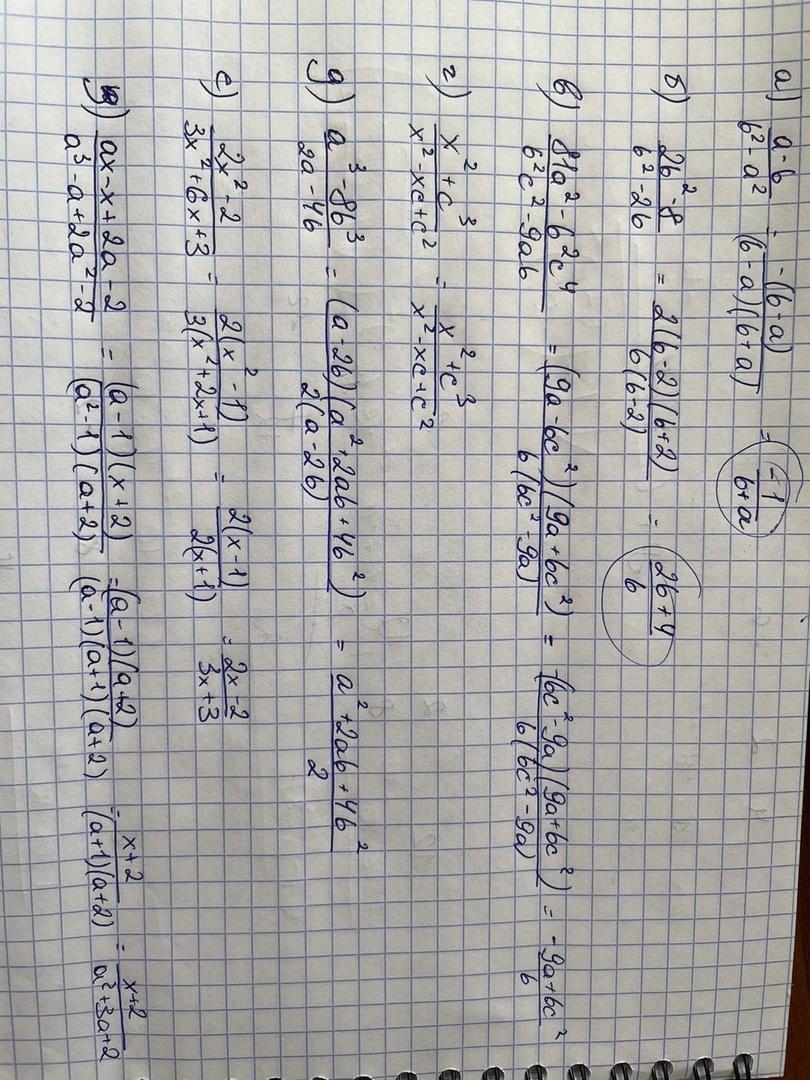 а) (a-b)/(b²-a²) = (-(b-a))/((b-a)(b+a)) = (-1)/(b+a)
б) (2b²-8)/(b²-2b) = (2(b-2)(b+2))/(b(b-2)) = (2b+4)/b
в) (81a²-b²c⁴)/(b²c²-9ab) = ((9a-bc²)(9a+bc²))/(b(bc²-9a)) = (-(bc²-9a)(9a+bc²))/(b(bc²-9a)) = -(9a+bc²)/b
г) (x²+c³)/(x²-xc+c²) = (x²+c³)/(x²-xc+c²)
д) (a³-8b³)/(2a-4b) = ((a-2b)(a²+2ab+4b²))/(2(a-2b)) = (a²+2ab+4b²)/2
е) (2x²-2)/(3x²+6x+3) = (2(x²-1))/(3(x²+2x+1)) = (2(x-1))/(2(x+1)) = (2x-2)/(3x+3)
(ax-x+2a-2)/(a³-a+2a²-2) = ((a-1)(x+2))/((a²-1)(a+2)) = ((a-1)(a+2))/((a-1)(a+1)(a+2)) = (x+2)/((a+1)(a+2)) = (x+2)/(a²+3a+2)